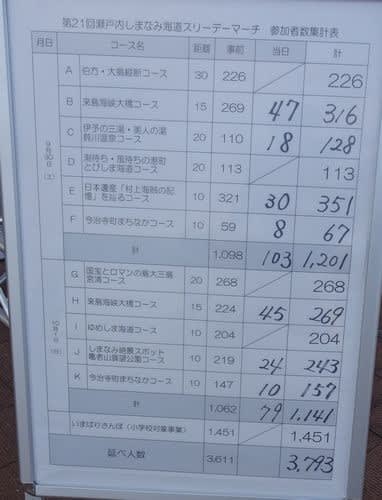 第21回瀬戸内しまなみ海道スリーデーマーチ 参加者数集計表
月日 コース名 距離 事前 当日 計
9月30日(土)
A 伯方・大島縦断コース 30 226 226
B 来島海峡大橋コース 15 269 47 316
C 伊予の三湯・美人の湯
鈍川温泉コース 20 110 18 128
D 潮待ち・風待ちの港町
とびしま海道コース 20 113 113
E 日本遺産「村上海賊の記
憶」を辿るコース 10 321 30 351
F 今治寺町まちなかコース 10 59 8 67
計 1,098 103 1,201
10月1日(日)
G 国宝とロマンの島大三島
宮浦コース 20 268 268
H 来島海峡大橋コース 15 224 45 269
I ゆめしま海道コース 10 204 204
J しまなみ絶景スポット
亀老山展望公園コース 10 219 24 243
K 今治寺町まちなかコース 10 147 10 157
計 1,062 79 1,141
いまばりさんぽ(小学校対象事業) 1,451 1,451
延べ人数 3,611 3,793